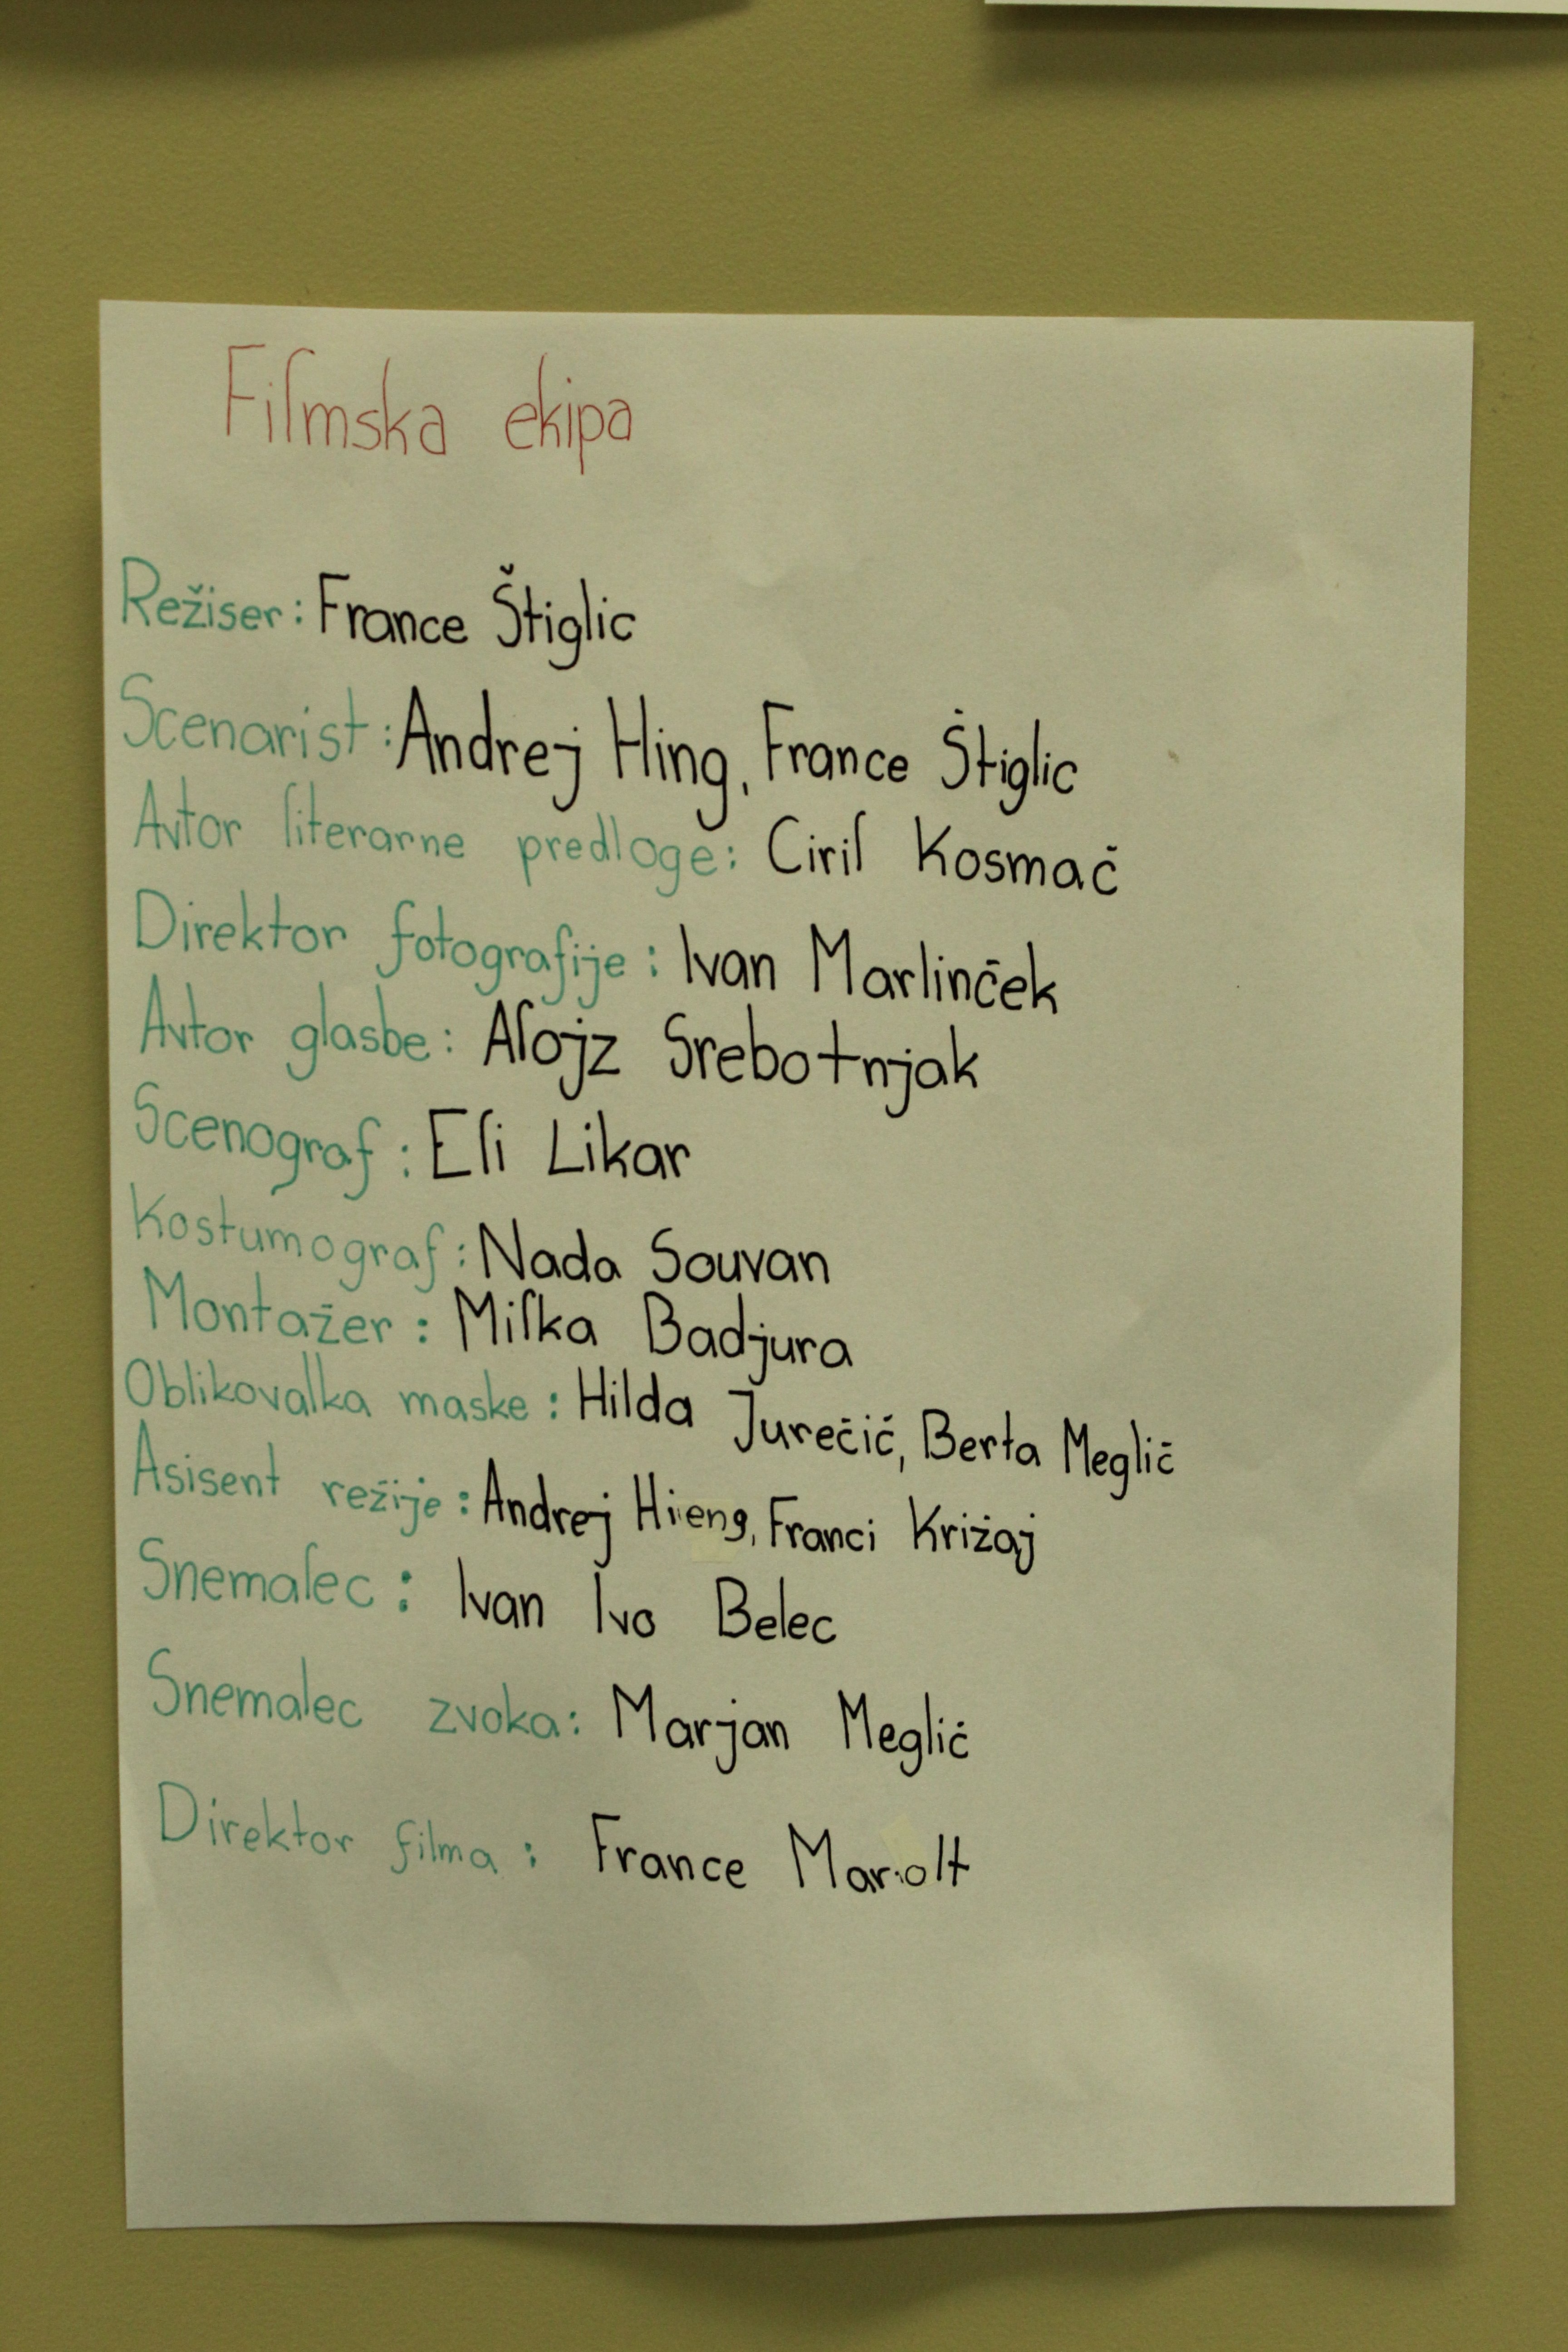 Filmska ekipa
Režiser: France Štiglic
Scenarist: Andrej Hing, France Štiglic
Avtor literarne predloge: Ciril Kosmač
Direktor fotografije: Ivan Marlinček
Avtor glasbe: Alojz Srebotnjak
Scenograf: Eli Likar
Kostumograf: Nada Souvan
Montažer: Milka Badjura
Oblikovalka maske: Hilda Jurečić, Berta Meglič
Asisent režije: Andrej Hieng, Franci Križaj
Snemalec: Ivan Ivo Belec
Snemalec zvoka: Marjan Meglič
Direktor filma: France Marolt